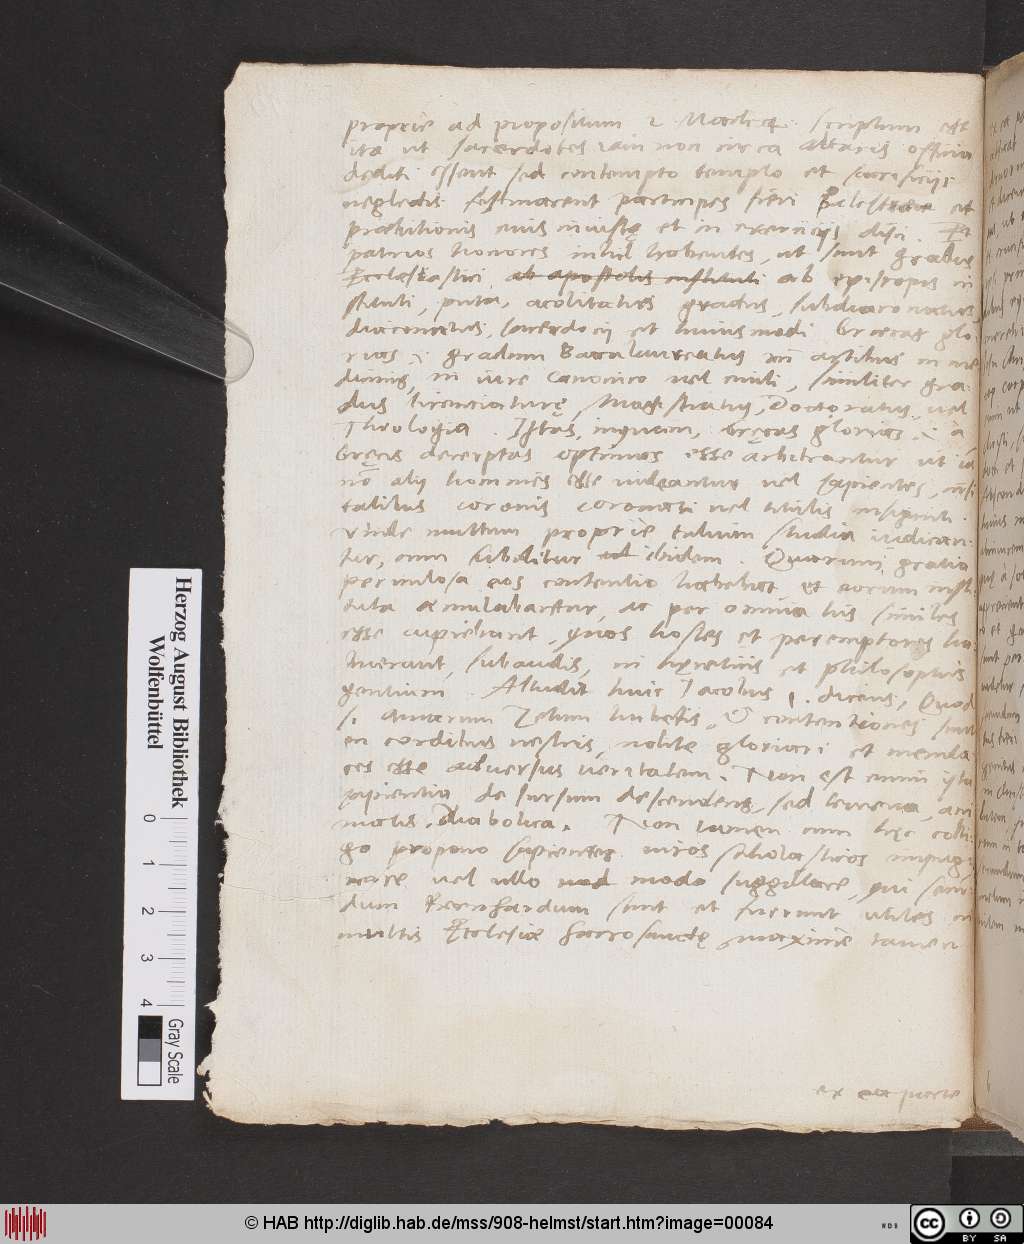 proprie ad propositum 2 Macha: scriptum est
ita ut sacerdotes iam non circa altaris officia
dediti essent sed contempto templo et sacrificijs
neglectis festinarent participes fieri Palestrae et
praebitionis eius iniustę et in exercicijs disci. Et
patrios honores nihil habentes, ut sunt gradus
Ecclesiastici, ab apostolis instituti ab episcopis in
stituti, puta, acolitatus gradus, subdiaconatus
diaconatus, sacerdocij et huiusmodi Graecas glo
rias .i. gradum Baccalaureatus in artibus in me
dicinis, in iure Canonico vel civili, similiter gra
dus licenciaturę, Magistratus, Doctoratus, vel
Theologia. Istas, inquam, Gręcas glorias .i. à
Gręcis decerptas optimas esse arbitrantur ut iā
nō alij homines esse videantur vel sapientes, nisi
talibus coronis coronati vel titulis insigniti.
Unde multum proprie talium studia iudican
tur, cum subditur ibidem. Quorum gratia
periculosa eos contentio habebat et eorum insti
tuta aemulabantur, ac per omnia his similes
esse cupiebant, quos hostes et peremptores ha
buerant, subaudis, in hęreticis et philosophis
gentium. Alludit huic Jacobus 1. dicens, Quod
si amarum Zelum habetis, & contentiones sint
in cordibus vestris, nolite gloriari et menda
ces esse adversus veritatem. Non est enim ista
sapientia de sursum descendens, sed terrena, ani
malis, diabolica. Non tamen cum hęc colli
go propono sapientes viros scholasticos impug
nare vel ullo modo suggillare, qui secun
dum Bernhardum sunt et fuerunt utiles in
multis Ecclesiae sacrosanctę maxime tamen
ex ea parte
Herzog August Bibliothek
Wolfenbüttel
0 1 2 3 4
Gray Scale
© HAB http://diglib.hab.de/mss/908-helmst/start.htm?image=00084
WDB
cc BY SA